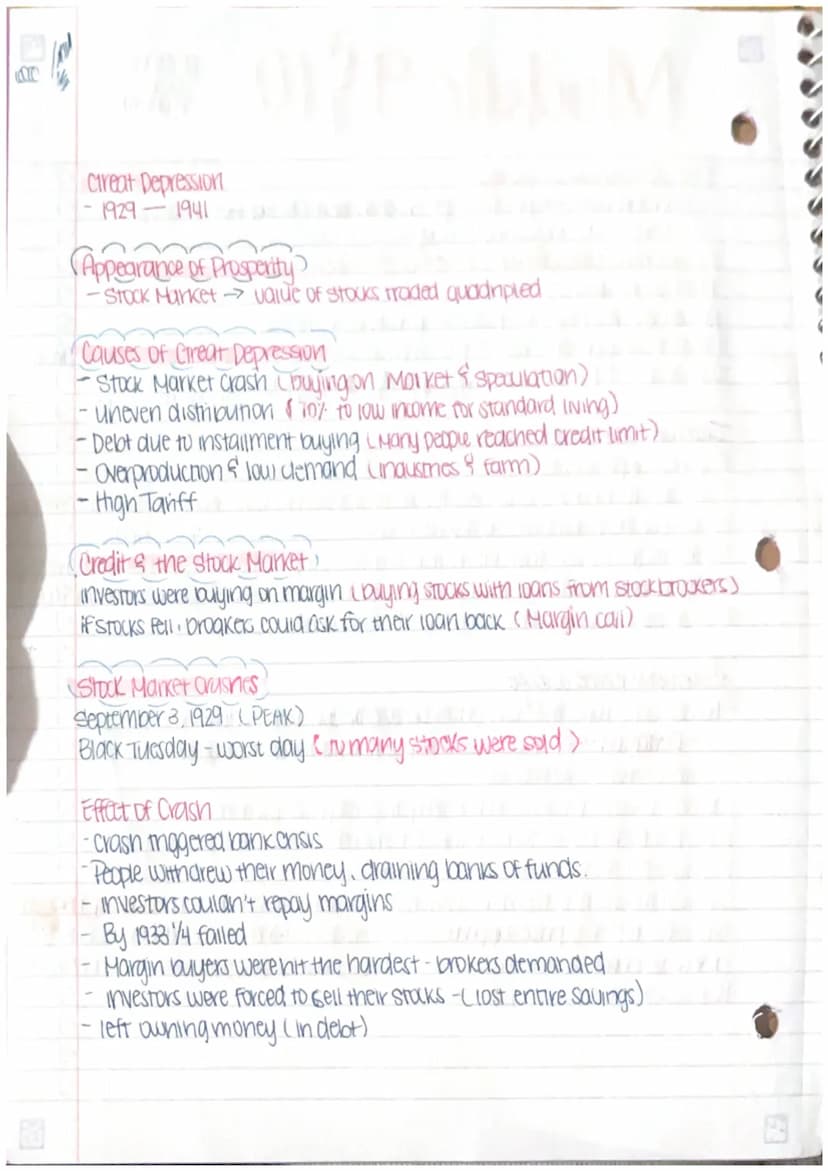 Great Depression
- 1929 — 1941
(Appearance of Prosperity)
- Stock Market → value of stocks traded quadripled
Causes of Great Depression
- Stock Market Crash (buying on Market & speculation)
- uneven distribution ( 10% to low income for standard living)
- Debt due to installment buying (Many people reached credit limit)
- Overproduction & low demand (industries & farm)
- High Tariff
(Credit & the Stock Market)
investors were buying on margin (buying stocks with loans from stockbrokers)
if stocks fell, brokers could ask for their loan back (Margin call)
(Stock Market Crashes)
September 3, 1929 (PEAK)
Black Tuesday - worst day ( many stocks were sold )
Effect of Crash
- crash triggered bank crisis
- People withdrew their money, draining banks of funds.
- investors couldn't repay margins
- By 1933 1/4 failed
- Margin buyers were hit the hardest - brokers demanded
- investors were forced to sell their stocks - (lost entire savings)
- left owning money (in debt)